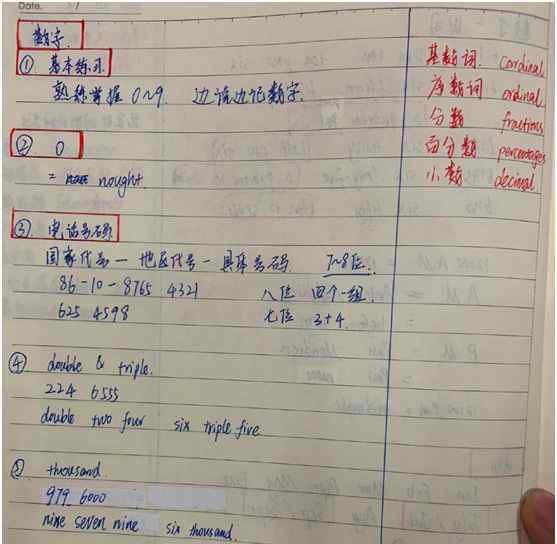 Date. /
数字.
① 基本练习
熟练掌握 0~9. 边读边记数字.
② 0
= nought.
③ 电话号码
国家代号 — 地区代号 - 具体号码. 7~8位.
86-10-8765 4321 八位 四个一组.
625 4598 七位 3+4.
④ double & triple.
224 6555
double two four six triple five
⑤ thousand.
979 6000
nine seven nine six thousand.
基数词. cardinal
序数词 ordinal
分数 fractions
百分数 percentages
小数 decimal